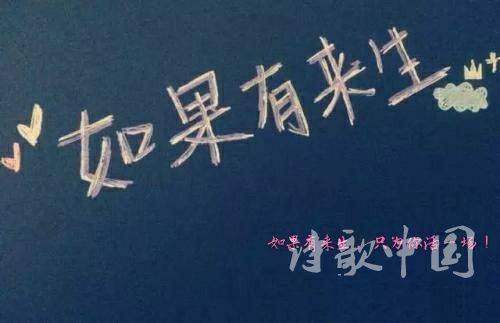 如果有来生
如果有来生，只为你活一场！
诗歌中国